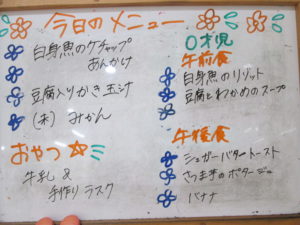 今日のメニュー
白身魚のケチャップ
あんかけ
豆腐入りかき玉汁
(未) みかん
おやつ
牛乳 &
手作りラスク
0才児
午前食
白身魚のリゾット
豆腐とわかめのスープ
午後食
シュガーバタートースト
さつま芋のポタージュ
バナナ